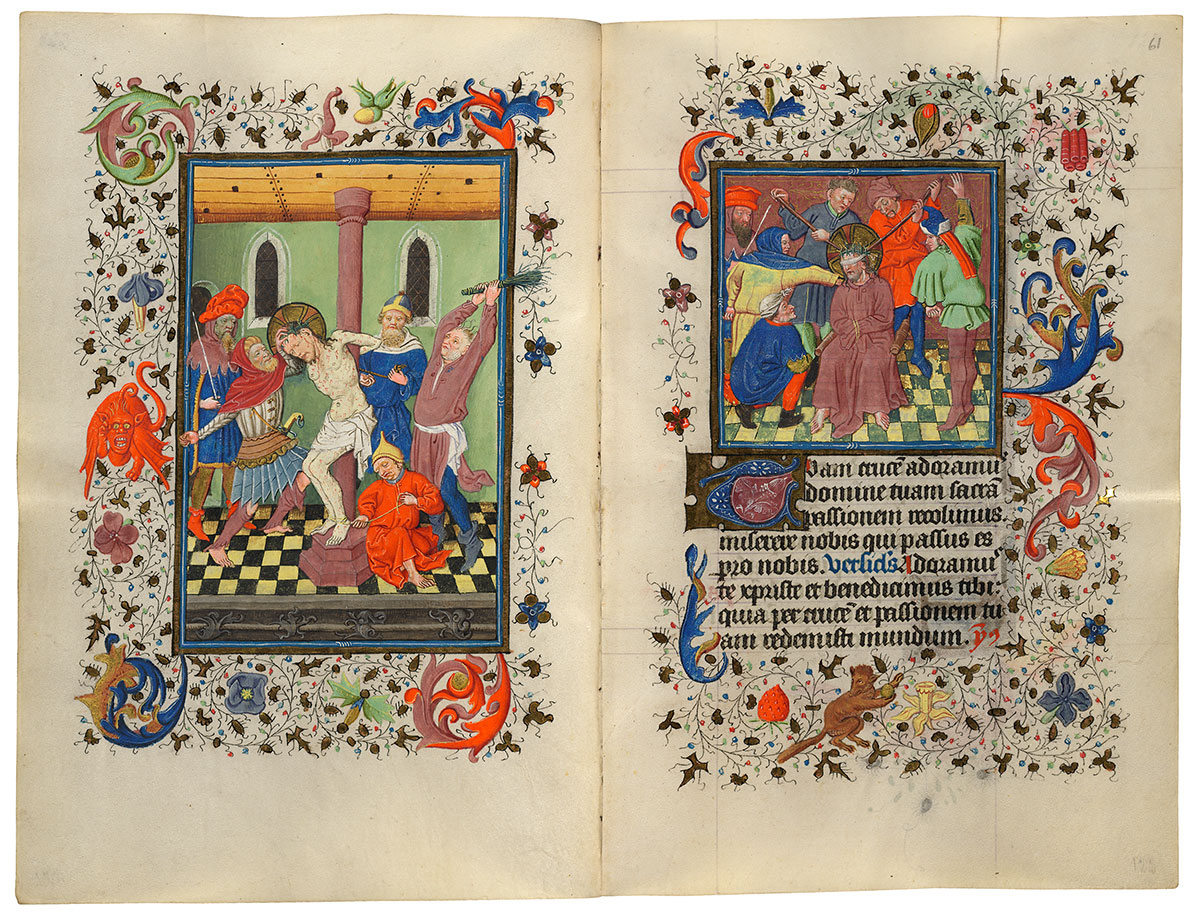 61
Tuam crucē adoramu
domine tuam sacrā
passionem recolimus.
miserere nobis qui passus es
pro nobis. versicl's Adoramu
te xpriste et benedicimus tibi·
quia per crucē et passionem tu
am redemisti mundum.